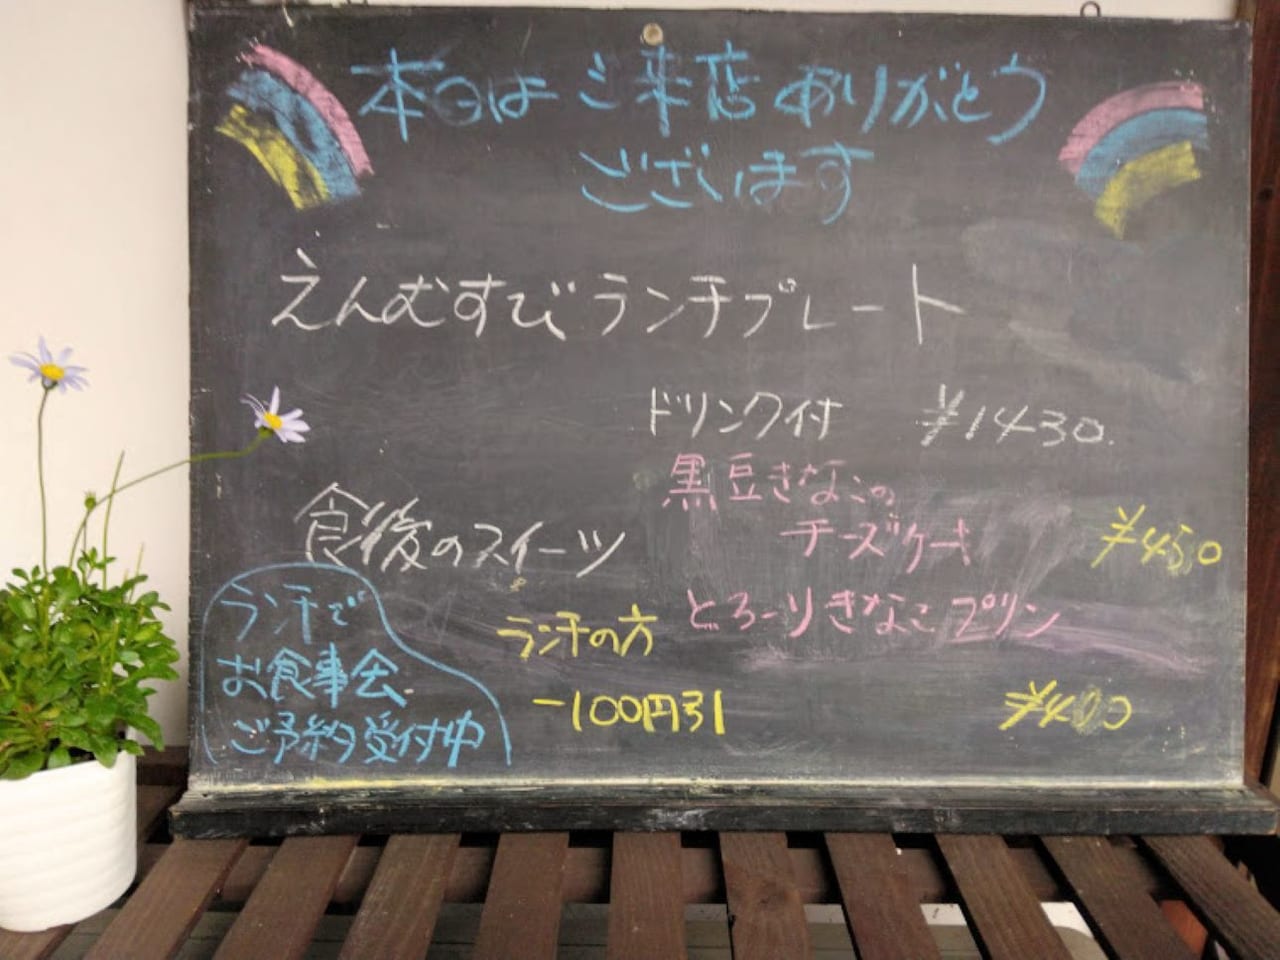 本日はご来店ありがとう
ございます
えんむすびランチプレート
ドリンク付 ¥1430.
食後のスイーツ
黒豆きなこの
チーズケーキ ¥450
とろーりきなこプリン
¥400
ランチの方
-100円引
ランチで
お食事会
ご予約受付中